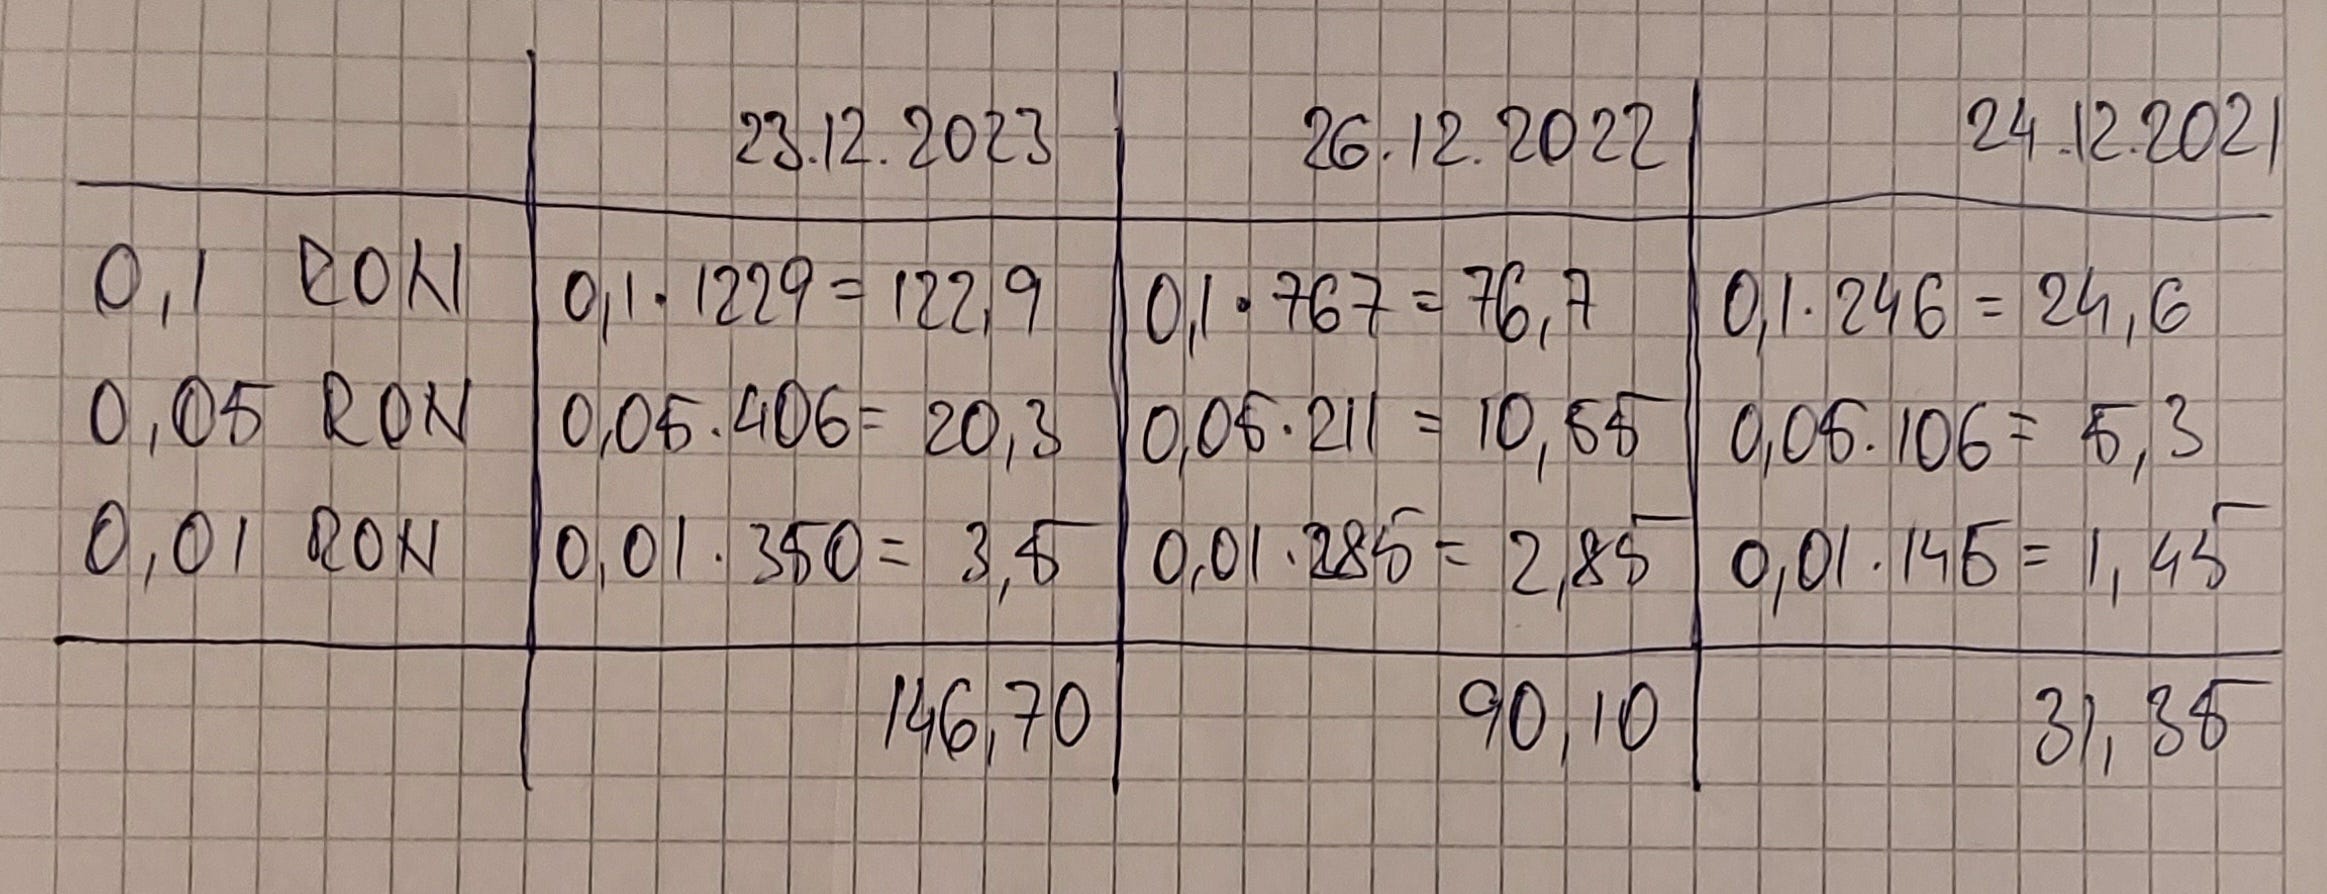 23.12.2023 26.12.2022 24.12.2021
0,1 RON 0,1·1229=122,9 0,1·767=76,7 0,1·246=24,6
0,05 RON 0,05·406=20,3 0,05·211=10,55 0,05·106=5,3
0,01 RON 0,01·350=3,5 0,01·285=2,85 0,01·145=1,45
146,70 90,10 31,35